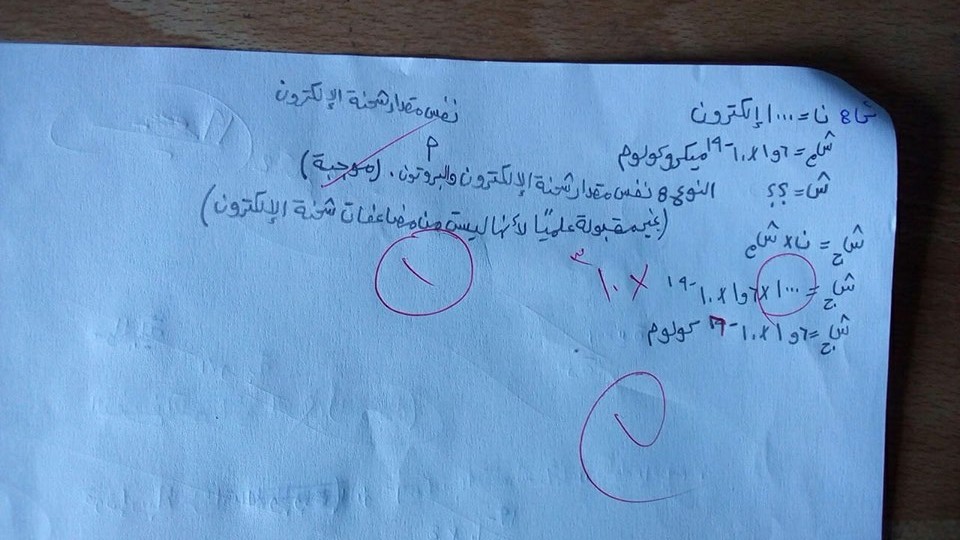 نفس مقدار شحنة الإلكترون
ن = ١٠٠٠ إلكترون
شم = ١,٦ × ١٠-١٩ ميكروكولوم
ش = ؟؟
النوع: نفس مقدار شحنة الإلكترون والبروتون. (موجبة)
(غير مقبولة علميًا لأنها ليست من مضاعفات شحنة الإلكترون)
شج = ن × شم
شج = ١٠٠٠ × ١,٦ × ١٠-١٩
× ١٠٣
شج = ١,٦ × ١٠-١٩ كولوم